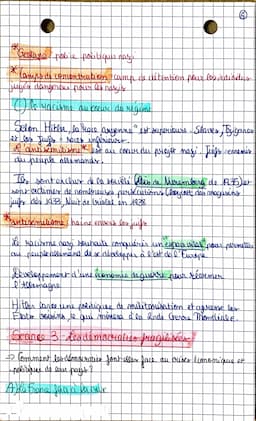 *Gestapo : police politique nazi
*Camps de concentration : camp de détention pour les individus
jugés dangereux pour les nazis
1) Le racisme au cœur du régime
Selon Hitler, la "race aryenne" est supérieure. Slaves, Tziganes
et les Juifs = races inférieures.
L'antisémitisme* est au cœur du projet nazi. Juifs = ennemis
du peuple allemand.
Ils sont exclus de la société (lois de Nuremberg de 1935) et
sont victimes de nombreuses persécutions (boycott des magasins
juifs dès 1933, Nuit de cristal en 1938
*antisémitisme : haine envers les juifs
Le racisme nazi souhaite conquérir un "espace vital" pour permettre
au peuple allemand de se développer à l'est de l'Europe.
Développement d'une économie de guerre pour réarmer
l'Allemagne
Hitler lance une politique de militarisation et agresse les
États voisins, ce qui mènera à la 2nde Guerre Mondiale.
Séance 3 : Les démocraties fragilisées
→ Comment les démocraties font-elles face au crises économique et
politiques de leur pays ?